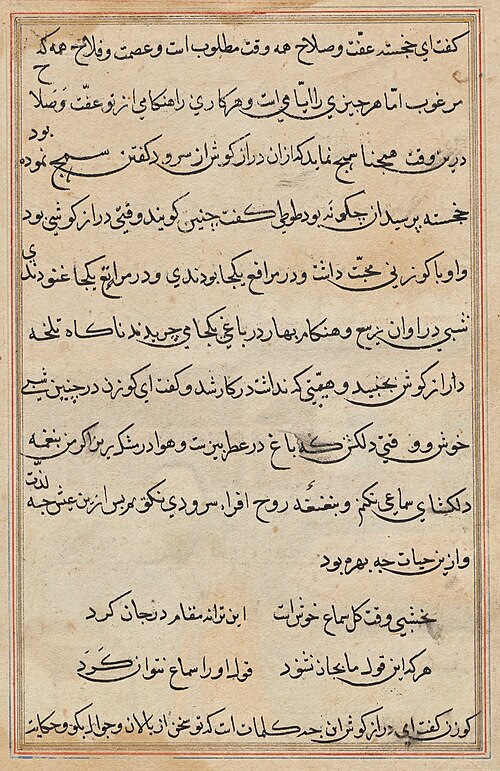 کفت ای خجسته عفّت و صلاح همه وقت مطلوب است و عصمت و فلاح همه که
مرغوب امّا هر چیزی را ایّامی است و هر کاری را هنکامی از تو عفّت و صلاح
درین وقت همچنان سمج نماید که از ان دراز کوش ان سرود کفتن سمج نموده بود
خجسته پرسید ان چکونه بود طوطی کفت چنین کویند وقتی دراز کوشی بود
و او با کوزنی محبّت داشت و در مرافع یکجا بودندی و در مراتع یکجا غنودندی
شبی در اوان ربیع و هنکام بهار در باغی یکجا می چریدند ناکاه
دراز کوش بجنبید و در کار شد و کفت ای کوزن در چنین شبی
خوش و وقتی دلکش که باغ در عطر بیزیست و هوا در مشک ریز اکر من بنغمه
دلکشای سماعی نکنم و بنغمهٔ روح افزا سرودی نکویم پس ازین عیش چه لذّت
و ازین حیات چه بهره بود
نخشبی وقت کل سماع خوش است
این ترانه مقام در جان کرد
هر که این قول ما بجان نشنود
قول او را سماع نتوان کرد
کوزن کفت ای دراز کوش این چه کلمات است که تو سخن از پالان و جوال بکو و حکایت